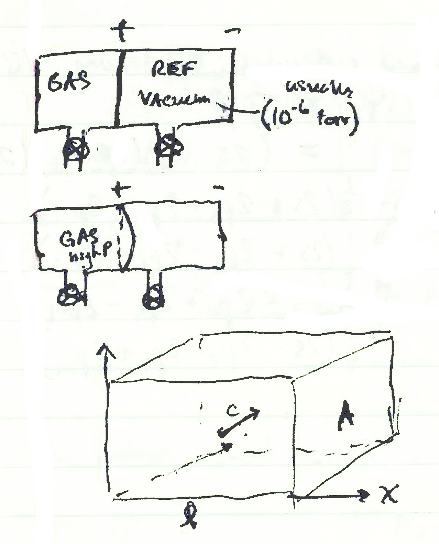 + -
GAS REF
VACUUM usually
(10⁻⁶ torr)
+ -
GAS
high P
C
A
l
X